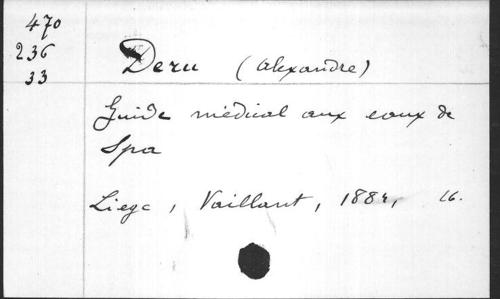 470
236
33
Deru (Alexandre)
Guide médical aux eaux de
Spa
Liege, Vaillant, 1882, 16.